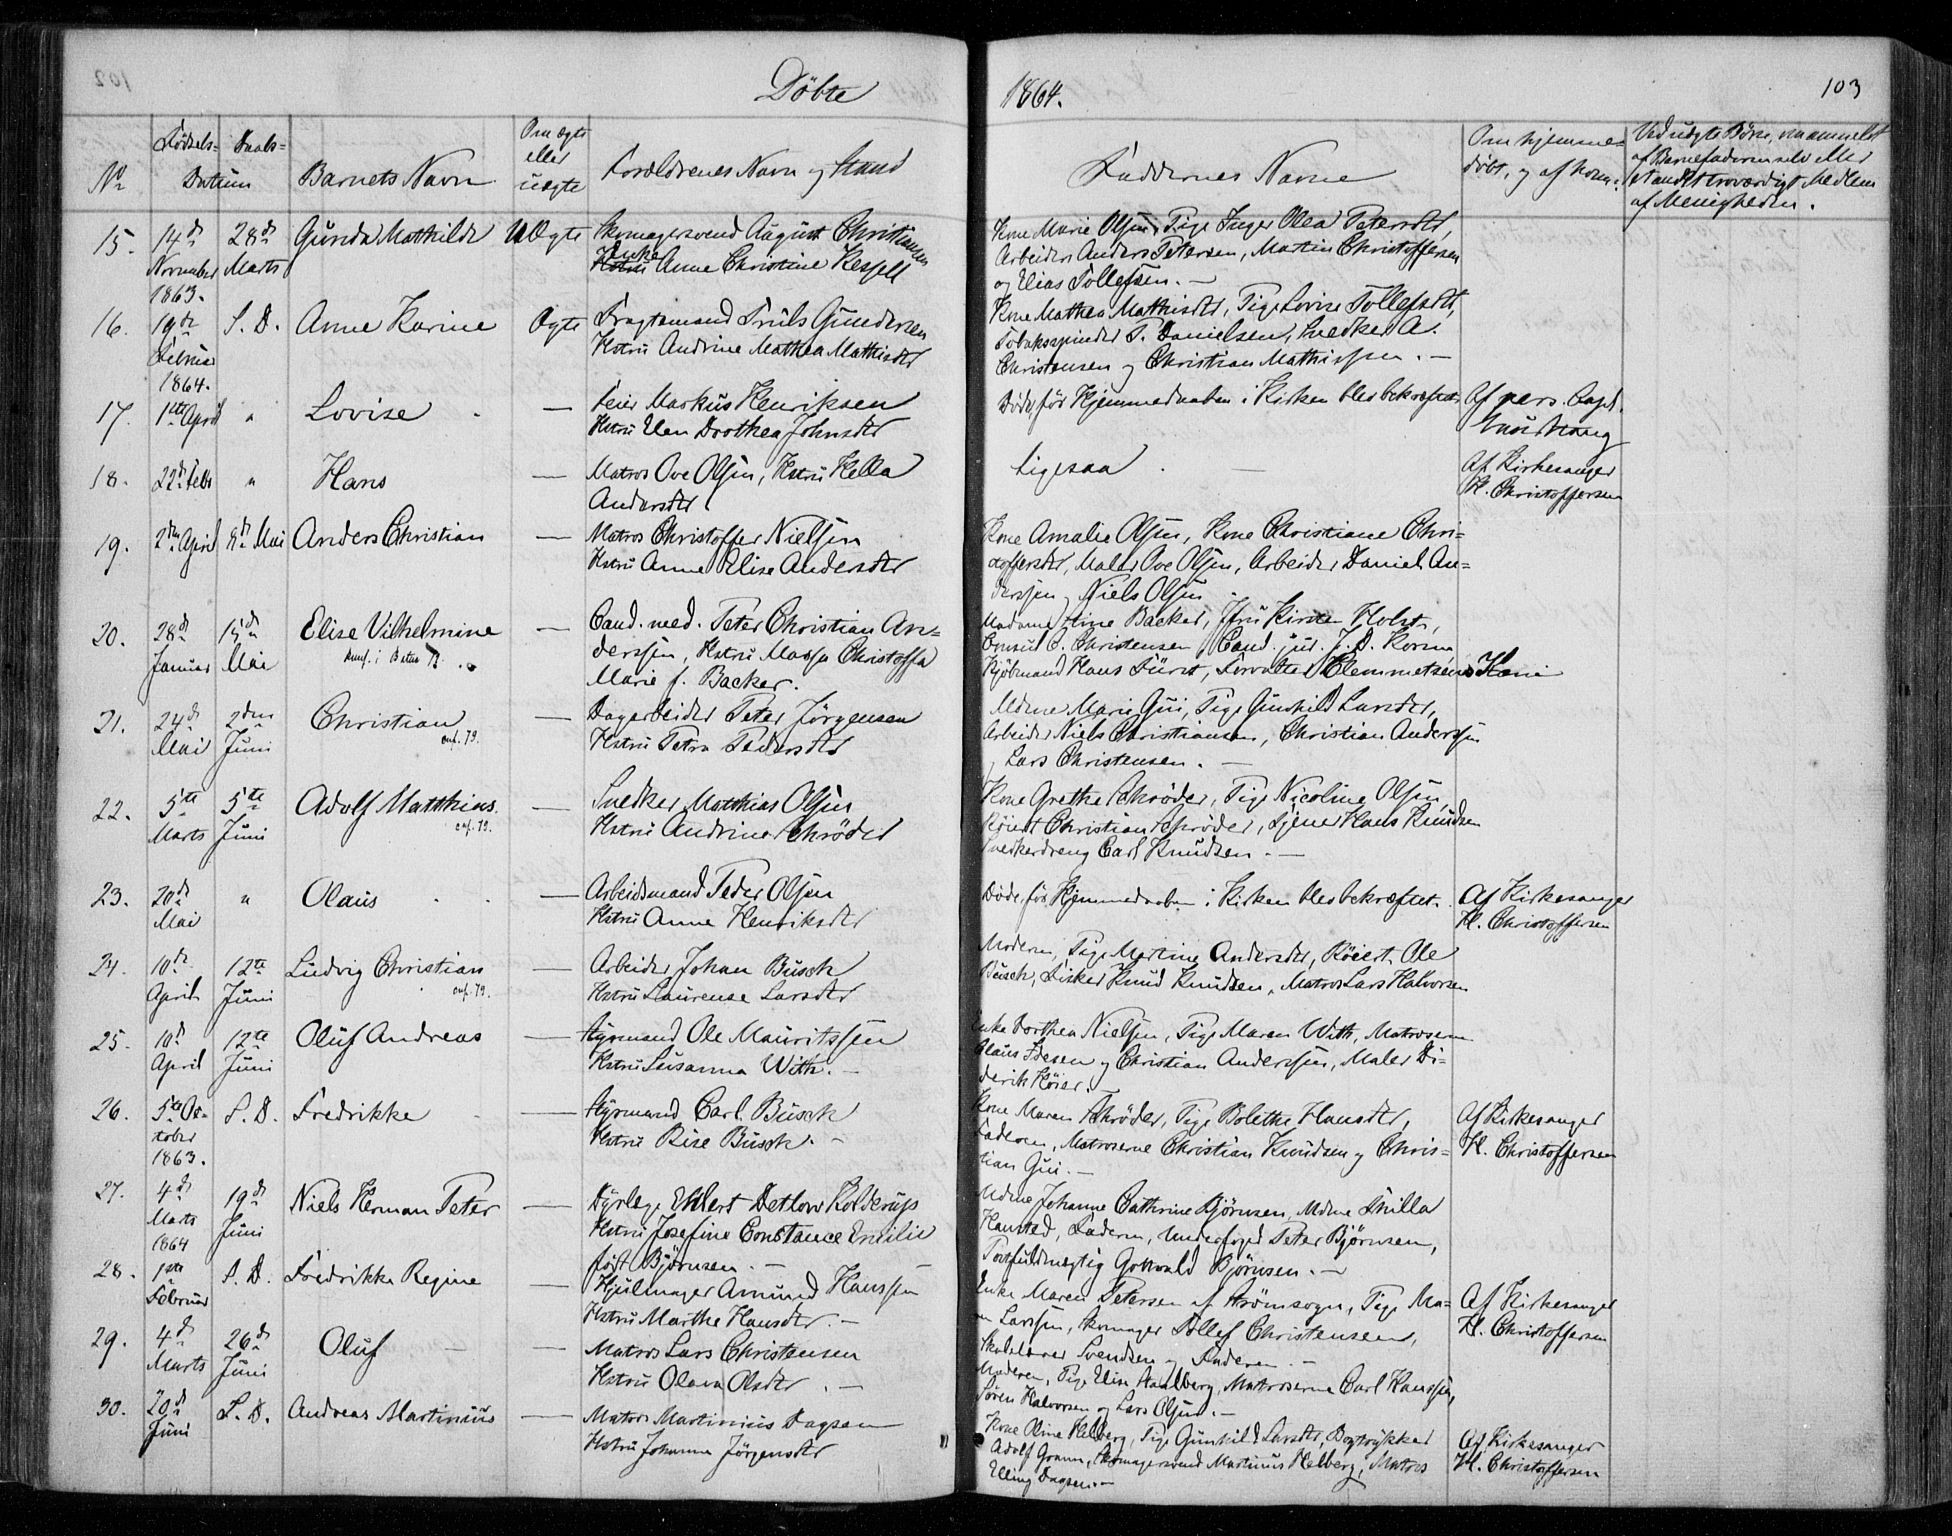 Döbte
1864.
103
No
Födsels-
Daabs-
Datum
Barnets Navn
Om ægte
eller
uægte
Forældrenes Navn og Stand
Faddernes Navne
Om hjemme-
döbt, og af hvem.
Ved uægte Börn, om anmeldt
af Barnefaderen selv eller
et andet troværdigt Medlem
af Menigheden.
15.
14de
November
1863.
28de
Marts
Gunda Mathilde
UÆgte
Skomagersvend August Christiansen
Enke
Anne Christine Kessell
Kone Marie Olsen, Pige Inger Olea Petersdtr,
Arbeider Anders Petersen, Martin Christoffersen
og Elias Tollefsen. —
16.
19de
Februar
1864.
S. D.
Anne Karine
Ægte
Fragtemand Truls Gundersen
Hstru Andrine Mathea Mathisdtr
Kone Mathea Mathisdtr, Pige Lovise Tollefsdtr,
Tobaksspinder P. Danielsen, Snedker A.
Christensen og Christian Mathissen. —
17.
1ste April
"
Lovise
—
Feier Markus Henriksen
Hstru Elen Dorothea Johnsdtr
Döde, för Hjemmedaaben i Kirken blev bekræftet
Af pers. Capl.
18.
22de Febr
"
Hans
—
Matros Ove Olsen, Hstru Kella
Andersdtr
Ligesaa
Af Kirkesanger
H. Christoffersen
19.
2den April
8de Mai
Anders Christian
—
Matros Christoffer Nielsen
Hstru Anne Elise Andersdtr
Kone Amalie Olsen, Kone Christiane Chri-
stoffersdtr, Maler Ove Olsen, Arbeider Daniel An-
derssen og Niels Olsen
20.
28de
Januar
15de
Mai
Elise Vilhelmine
—
Cand. med. Peter Christian An-
derssen, Hstru Christoffa
Marie f. Backer.
Madame Line Backer, Jfru Kirsten Holst,
Consul C. Christensen, Cand. jur. J. D.
Kjöbmand Hans Fürst, Forvalter Clemmetsen
21.
24de
Mai
2den
Juni
Christian
conf. 79.
—
Dagarbeider Peter Jörgensen
Hstru Petra Pedersdtr
Mdme Marie Gui, Pige Gunhild Larsdtr,
Arbeider Niels Christiansen, Christian Anderssen
og Lars Christensen. —
22.
5te
Marts
5te
Juni
Adolf Matthias
conf. 79.
—
Snedker Matthias Olsen
Hstru Andrine Schröder
Kone Grethe Schröder, Pige Nicoline Olsen,
Röiert Christian Schröder, Tjener Hans Knudsen
Snedkerdreng Carl Knudsen. —
23.
20de
Mai
"
Olaus
—
Arbeidsmand Peder Olsen
Hstru Anne Henriksdtr
Döde, för Hjemmedaaben i Kirken blev bekræftet.
Af Kirkesanger
H. Christoffersen
24.
10de
April
12te
Juni
Ludvig Christian
conf. 79.
—
Arbeider Johan Busch
Hstru Laurense Larsdtr
Moderen, Pige Martine Andersdtr, Röiert Ole
Busch, Fisker Knud Knudsen, Matros Lars Halvorsen
25.
10de
April
12te
Juni
Oluf Andreas
—
Styrmand Ole Mauritssen
Hstru Susanna With. —
Enke Dorthea Nielsen, Pige Maren With, Matroserne
Claus Ibsen og Christian Anderssen, Maler Di-
derik Röier.
26.
5te Oc-
tober
1863.
S. D.
Fredrikke
—
Styrmand Carl Busch
Hstru Rise Busch. —
Kone Maren Schröder, Pige Bolette Hansdtr,
Faderen, Matroserne Christian Knudsen og Chris-
tian Gui. —
Af Kirkesanger
H. Christoffersen
27.
4de
Marts
1864
19de
Juni
Niels Herman Peter
—
Dyrlæge Ehlert Detlow Kolderup
Hstru Josefine Constance Emilie
født Björnsen. —
Mdme Johanne Cathrine Björnsen, Mdme
Hansted, Faderen, Underfoged Peter Björnsen,
Postfuldmægtig Gottwald Björnsen. —
28.
1ste
Februar
S. D.
Fredrikke Regine
—
Hjulmager Amund Hanssen
Hstru Marthe Hansdtr. —
Enke Maren Petersen af Strömsogn, Pige Ma-
ren Larssen, Skomager Tollef Christensen,
Skolelærer Svendsen og Faderen. —
Af Kirkesanger
H. Christoffersen
29.
4de
Marts
26de
Juni
Oluf
—
Matros Lars Christensen
Hstru Olava Olsdtr. —
Moderen, Pige Elise Stahlberg, Matroserne Carl Hanssen,
Sören Halvorsen og Lars Olsen. —
30.
20de
Juni
S. D.
Andreas Martinius
—
Matros Martinius Dagsen
Hstru Johanne Jörgensdtr
Kone Oline Helberg, Pige Gunhild Larsdtr, Bogtrykker
Adolf Gramn, Skomagersvend Martinius Helberg, Matros
Elling Dagsen. —
Af Kirkesanger
H. Christoffersen